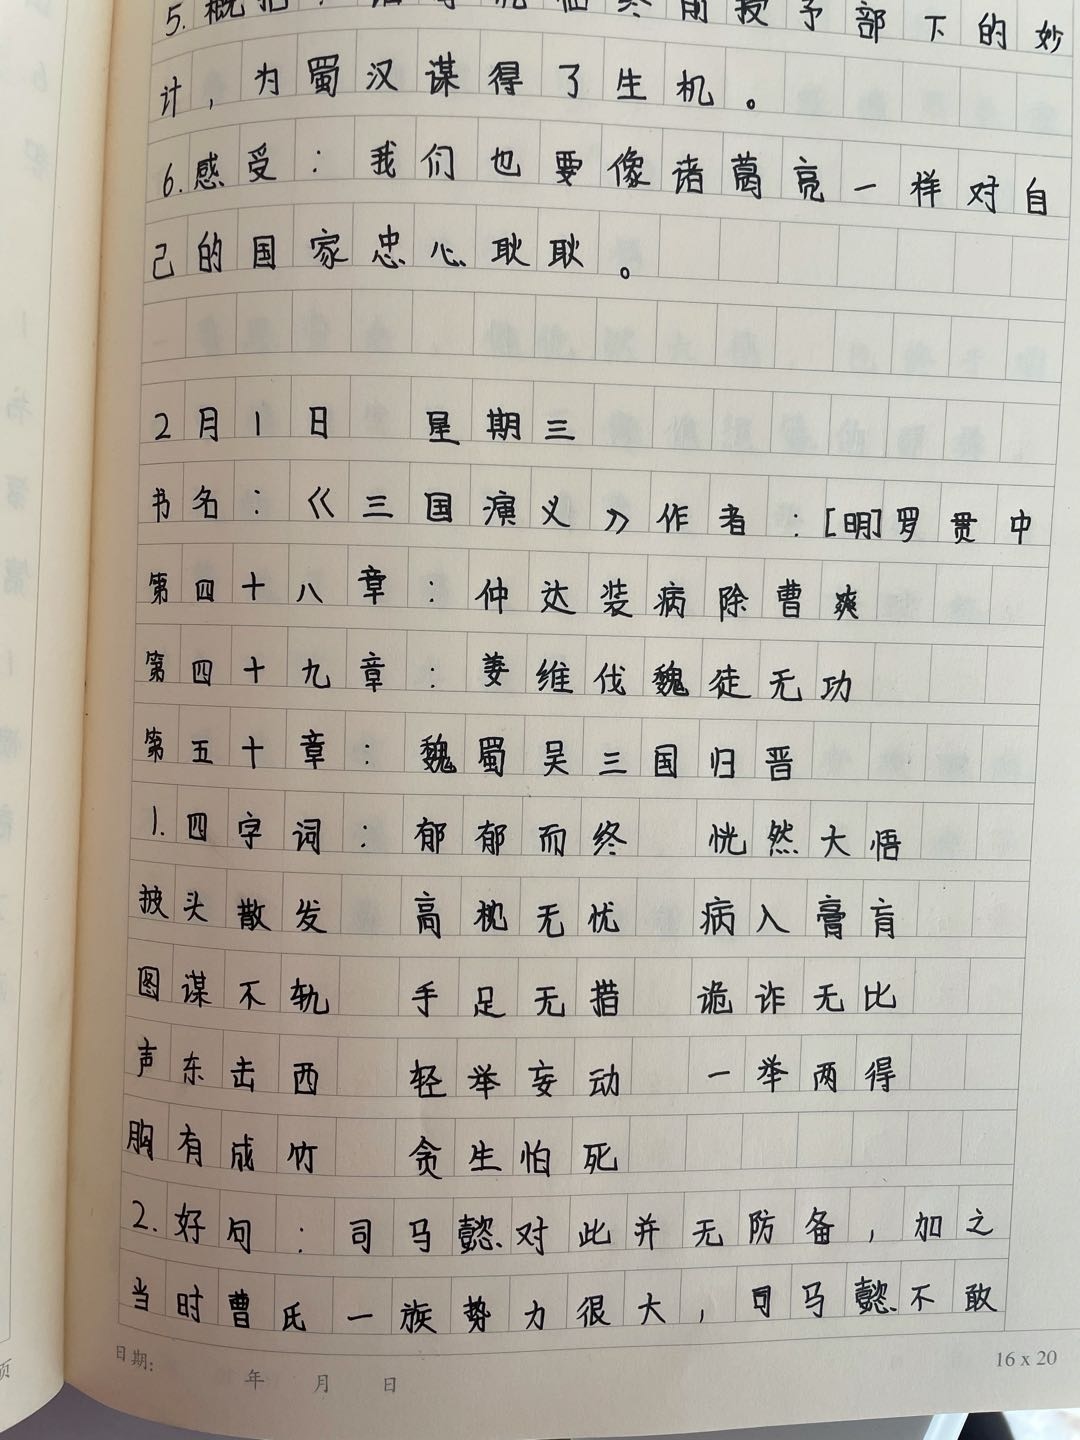 5.概括：诸葛亮临终前授予部下的妙
计，为蜀汉谋得了生机。
6.感受：我们也要像诸葛亮一样对自
己的国家忠心耿耿。
2月1日 星期三
书名：《三国演义》作者：[明]罗贯中
第四十八章：仲达装病除曹爽
第四十九章：姜维伐魏徒无功
第五十章：魏蜀吴三国归晋
1.四字词：郁郁而终 恍然大悟
披头散发 高枕无忧 病入膏肓
图谋不轨 手足无措 诡诈无比
声东击西 轻举妄动 一举两得
胸有成竹 贪生怕死
2.好句：司马懿对此并无防备，加之
当时曹氏一族势力很大，司马懿不敢
日期: 年 月 日
16 x 20